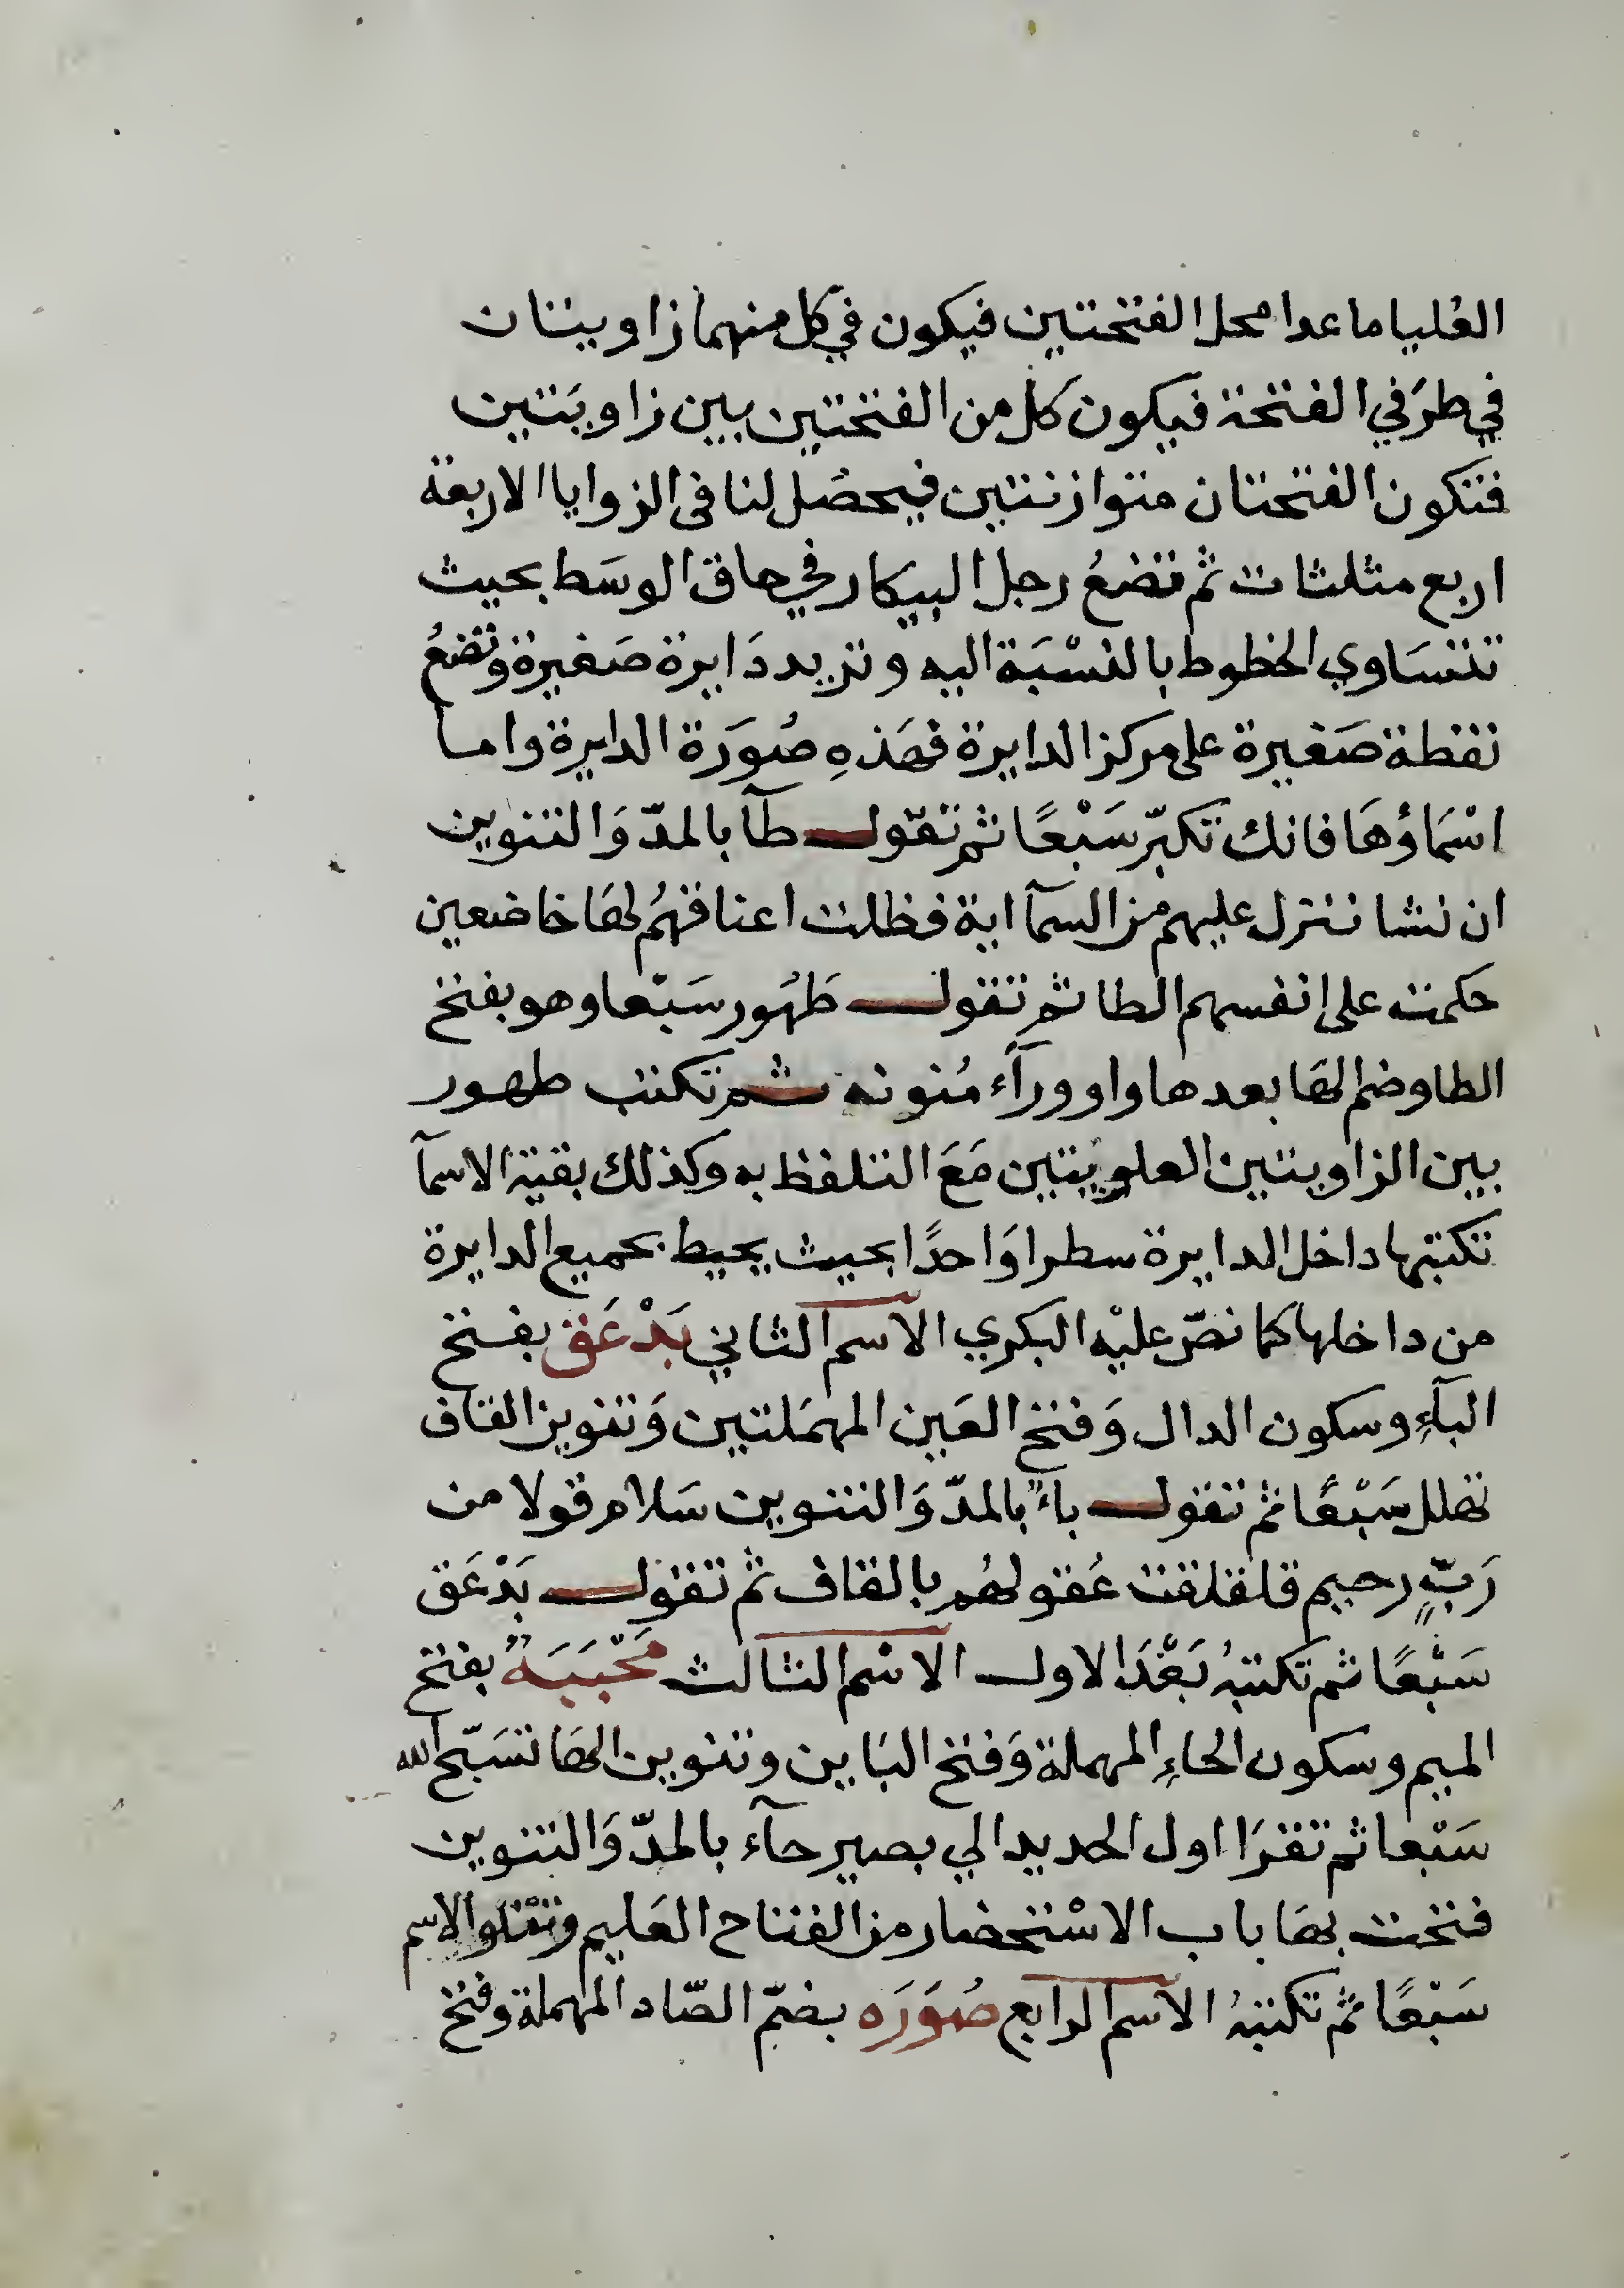 العُليا ما عدا محل الفتحتين فيكون في كل منهما زاويتان
في طرَفي الفتحة فيكون كل من الفتحتين بين زاويَتين
فتكون الفتحتان متوازنتين فيحصُل لنا فى الزوايا الاربعة
اربع مثلثات ثم تضعُ رجل البيكار في حاق الوسَط بحيث
تتسَاوي الخطوط بالنسْبَة اليه وتزيد دَايرة صَغيرة وتضعُ
نقطة صَغيرة على مركز الدايرة فهَذهِ صُورَة الدايرة واما
اسْمَاؤهَا فانك تكبّر سَبْعًا ثم تقول طآ بالمدّ وَالتنوين
ان نشا ننزل عليهم من السمآ اية فظلت اعناقهُم لهَا خاضعين
حكمت على انفسهم الطا ثم تقول طَهُور سَبْعا وهو بفتح
الطا وضم الهَا بعدها واو ورآء مُنونه ثم تكتب طهور
بين الزاويتين العلويتين مَعَ التلفظ به وكذلك بقية الاسمآ
تكتبها داخل الدايرة سطرا وَاحدًا بحيث يحيط بجميع الدايرة
من داخلها كما نصّ عليْه البكري الاسم الثاني بَدْعَق بفتح
البآءِ وسكون الدال وَفتح العَين المهمَلتين وَتنوين القاف
تهلل سَبْعًا ثم تقول باءٌ بالمدّ وَالتنوين سَلام قولا من
رَبٍّ رحيم قلقلقت عُقولهُم بالقاف ثم تقول بَدْعَق
سَبْعًا ثم تكتبهُ بَعْدَ الاول الاسْم الثالث مَحْبَبَةٌ بفتح
الميم وسكون الحاءِ المهملة وَفتح البَاين وتنوين الهَا تسَبّح الله
سَبْعا ثم تقرَا اول الحديد الي بصير حآء بالمدّ وَالتنوين
فتحت بهَا باب الاسْتحضار من الفتاح العَليم وتتلو الاسم
سَبْعًا ثم تكتبهُ الاسم الرابع صُوَرَه بضمّ الصّاد المهملة وفتح